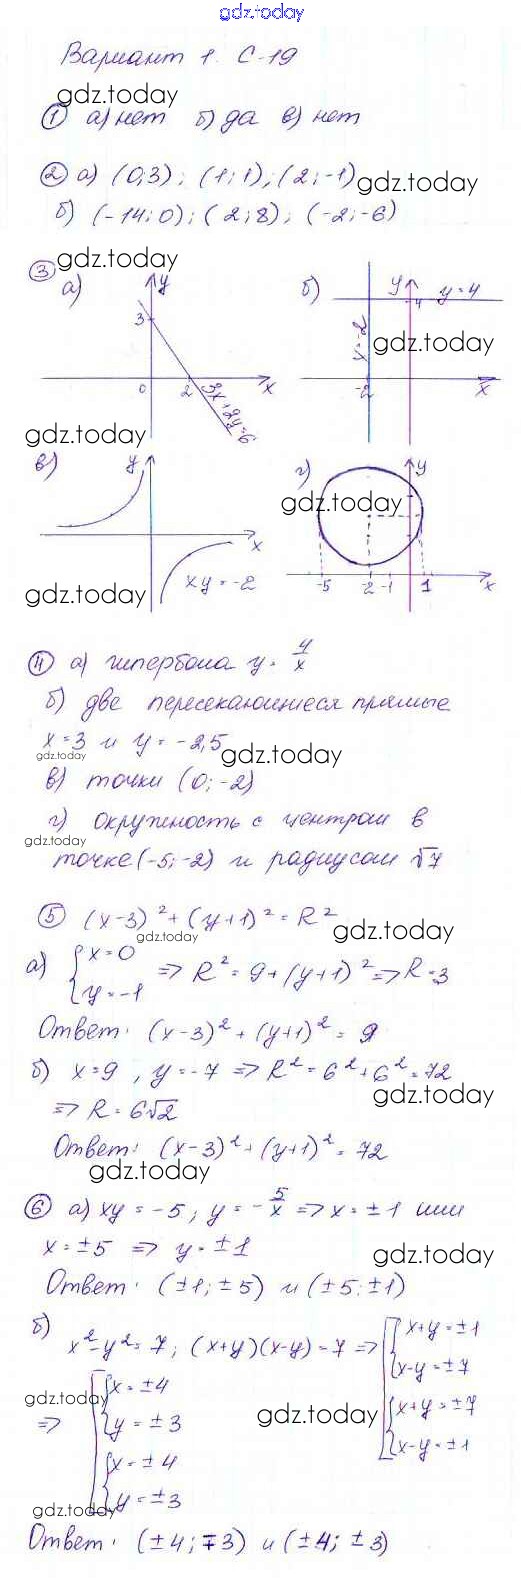 gdz.today
Вариант 1. С-19
gdz.today
① а) нет б) да в) нет
② а) (0;3); (1;1); (2;-1) gdz.today
б) (-14;0); (2;8); (-2;-6)
③ gdz.today
а) y 3 0 2 x 3x+2y=6
б) y 4 y=4 x=-2 -2 x
gdz.today
gdz.today
в) y x xy=-2
г) y -5 -2 -1 1 x
gdz.today
gdz.today
④ а) гипербола y = 4/x
б) две пересекающиеся прямые
x=3 и y=-2,5
gdz.today gdz.today
в) точки (0;-2)
г) окружность с центром в
gdz.today
точке (-5;-2) и радиусом √7
⑤ (x-3)²+(y+1)²=R²
gdz.today gdz.today
а) { x=0 y=-1 => R²=9+(y+1)² => R=3
Ответ: (x-3)²+(y+1)²=9
б) x=9, y=-7 => R²=6²+6²=72
gdz.today
=> R=6√2
Ответ: (x-3)²+(y+1)²=72
gdz.today
⑥ а) xy=-5, y=-5/x => x=±1 или
x=±5 => y=±1
gdz.today
Ответ: (±1;±5) и (±5;±1)
б) x²-y²=7; (x+y)(x-y)=7 => [ { x+y=±1 x-y=±7 { x+y=±7 x-y=±1
gdz.today gdz.today
=> [ { x=±4 y=±3 { x=±4 y=±3
gdz.today
Ответ: (±4;∓3) и (±4;±3)